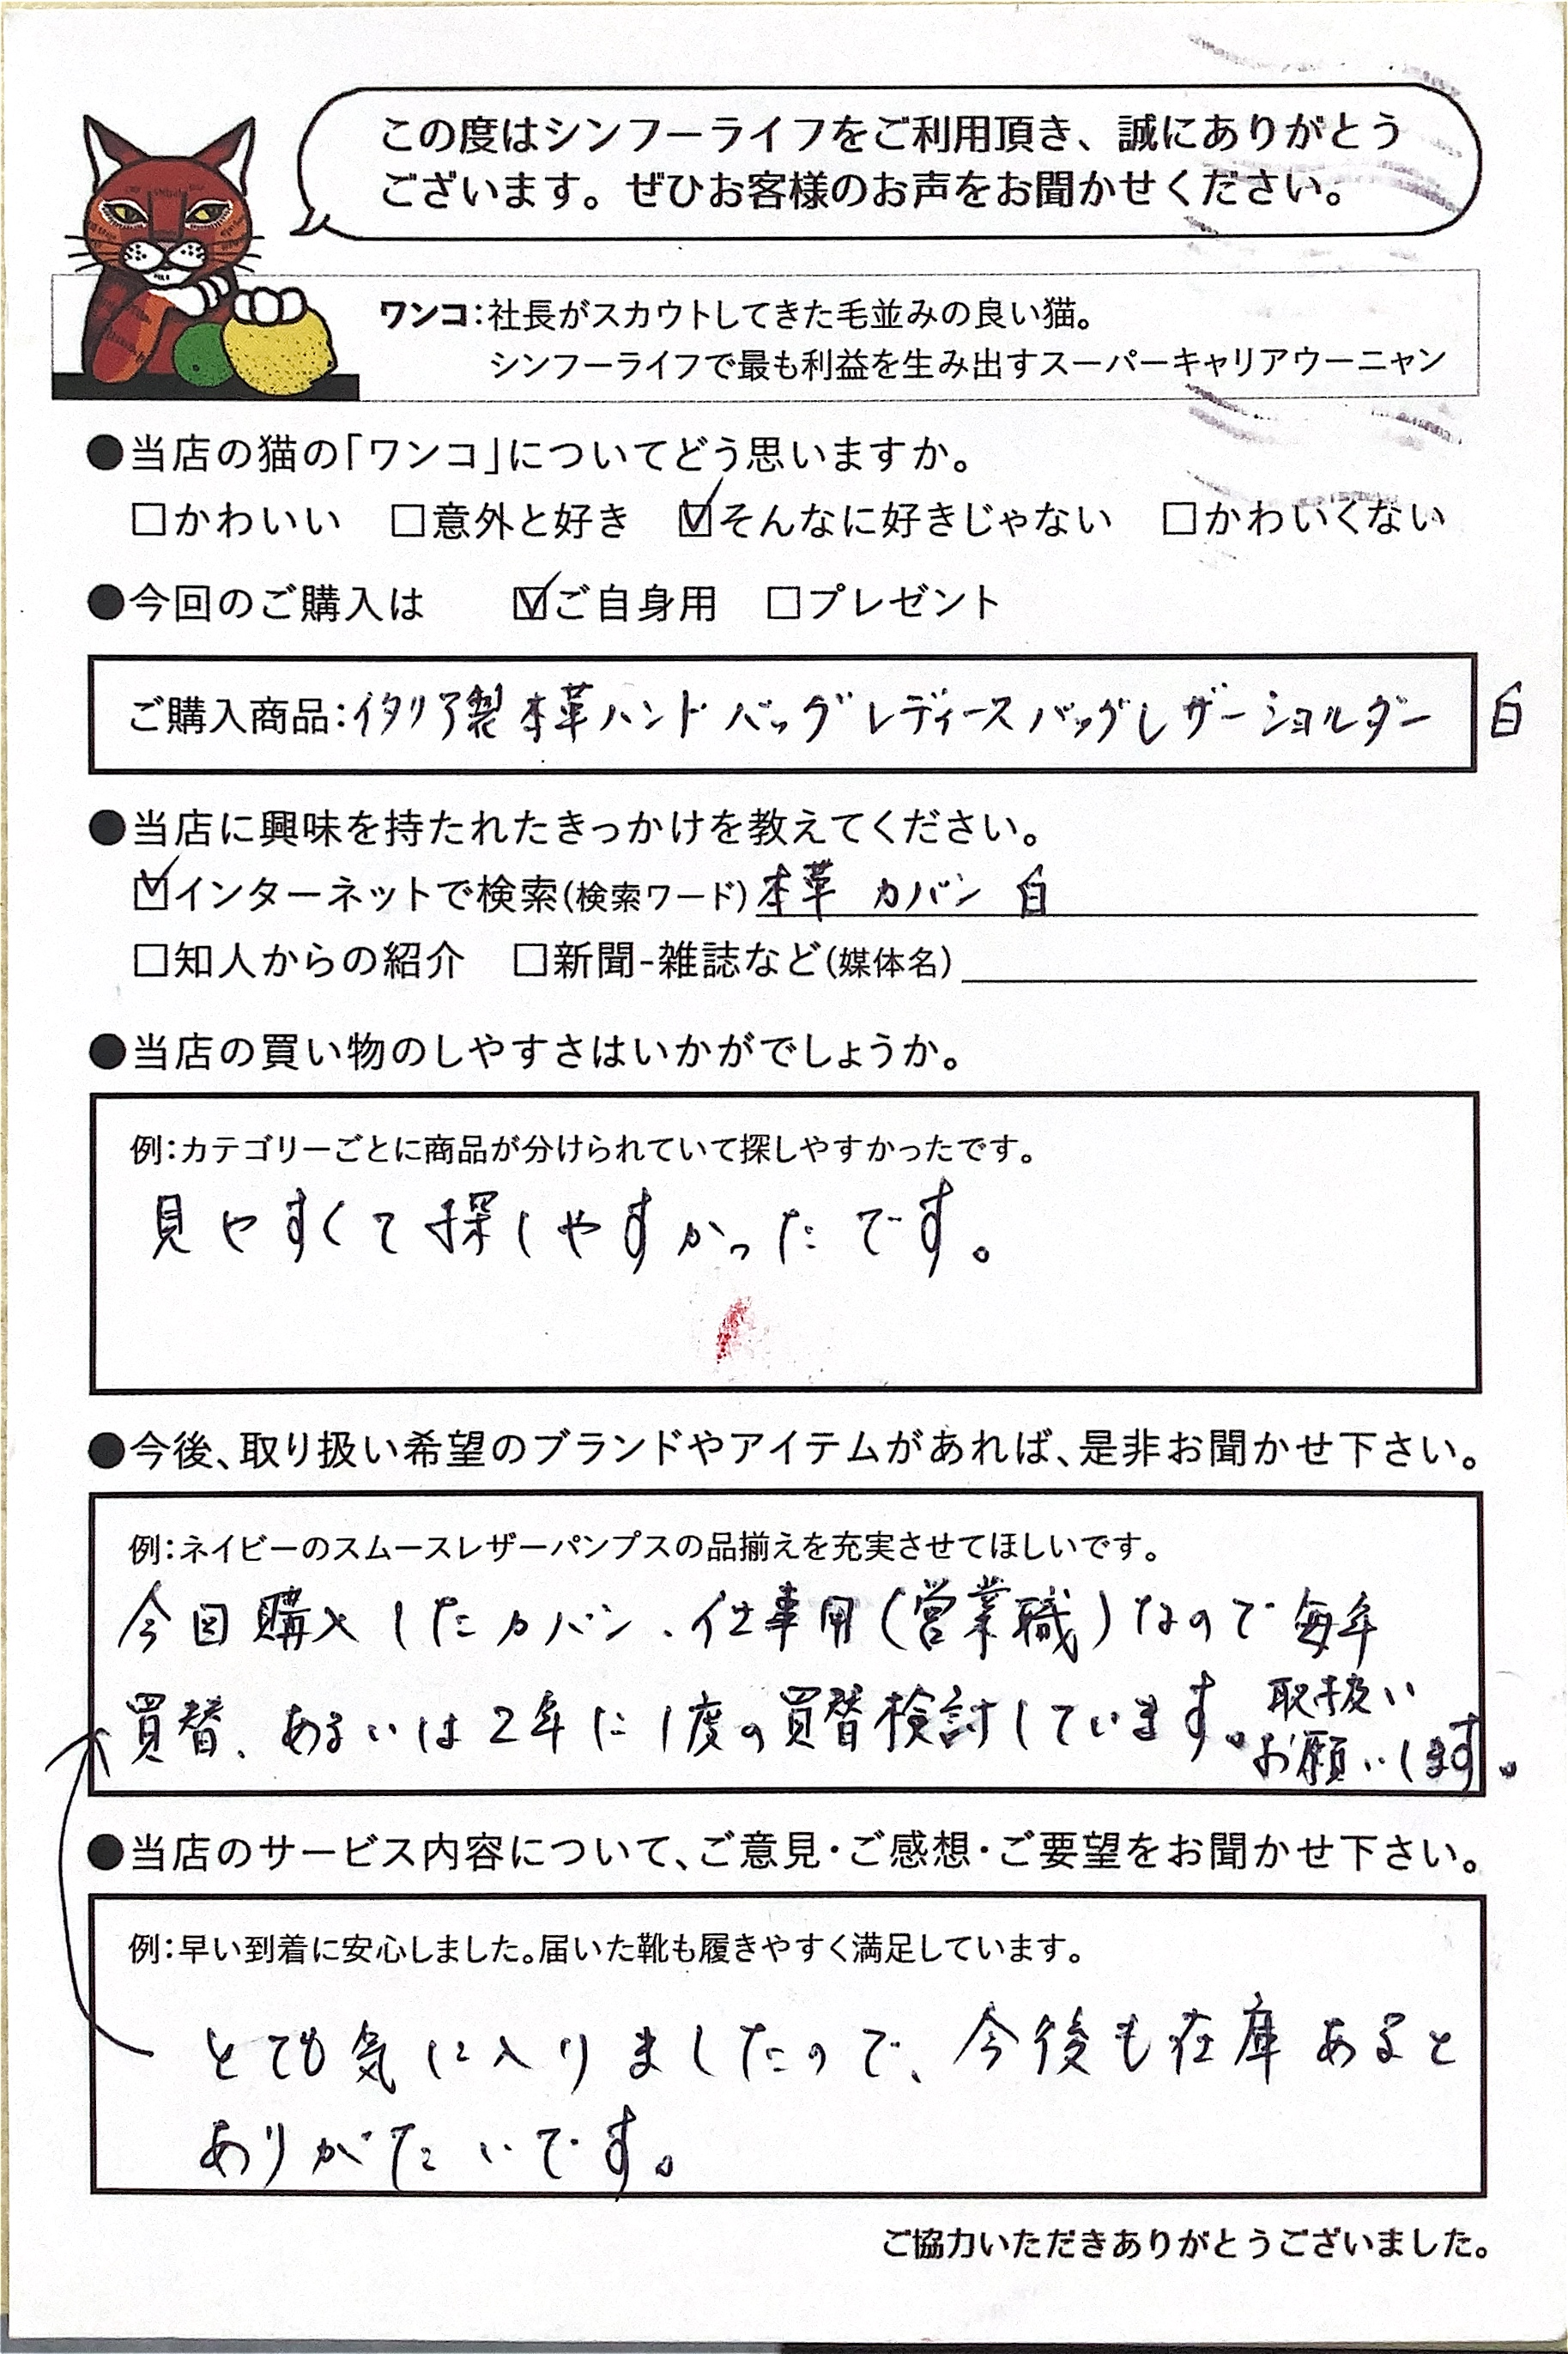 この度はシンフーライフをご利用頂き、誠にありがとう
ございます。ぜひお客様のお声をお聞かせください。
ワンコ:社長がスカウトしてきた毛並みの良い猫。
シンフーライフで最も利益を生み出すスーパーキャリアウーニャン
●当店の猫の「ワンコ」についてどう思いますか。
□かわいい □意外と好き ☑そんなに好きじゃない □かわいくない
●今回のご購入は ☑ご自身用 □プレゼント
ご購入商品:イタリア製本革ハンドバッグレディースバッグレザーショルダー 白
●当店に興味を持たれたきっかけを教えてください。
☑インターネットで検索(検索ワード)本革 カバン 白
□知人からの紹介 □新聞-雑誌など(媒体名)
●当店の買い物のしやすさはいかがでしょうか。
例:カテゴリーごとに商品が分けられていて探しやすかったです。
見やすくて探しやすかったです。
●今後、取り扱い希望のブランドやアイテムがあれば、是非お聞かせ下さい。
例:ネイビーのスムースレザーパンプスの品揃えを充実させてほしいです。
今回購入したカバン、仕事用(営業職)なので毎年
買替、あるいは2年に1度の買替検討しています。取扱い
お願いします。
●当店のサービス内容について、ご意見・ご感想・ご要望をお聞かせ下さい。
例:早い到着に安心しました。届いた靴も履きやすく満足しています。
とても気に入りましたので、今後も在庫あると
ありがたいです。
ご協力いただきありがとうございました。